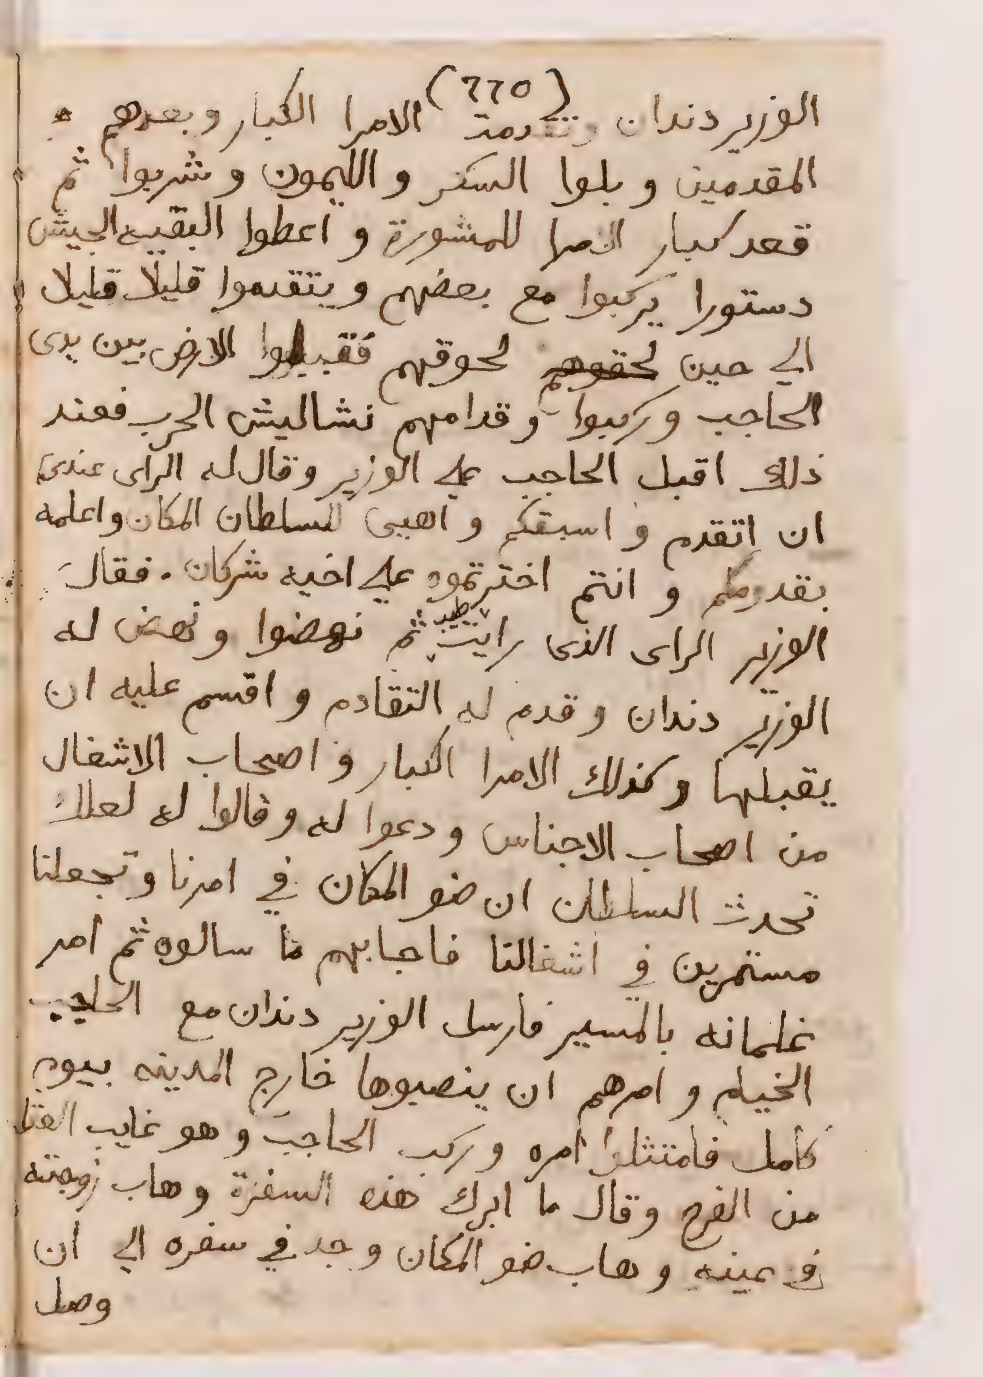 (770)
الوزير دندان وتقدمت الامرا الكبار وبعدهم
المقدمين وبلوا السكر والليمون وشربوا ثم
قعد كبار الامرا للمشورة واعطوا البقيه الجيش
دستورا يركبوا مع بعضهم ويتقدموا قليلا قليلا
الي حين لحقوهم لحوقهم فقبلوا الارض بين يدى
الحاجب وركبوا وقدامهم نشاليش الحرب فعند
ذلك اقبل الحاجب علي الوزير وقال له الراى عندى
ان اتقدم واسبقكم واهيى للسلطان المكان واعلمه
بقدومكم وانتم اخترتموه علي اخيه شركان . فقال
الوزير الراى الذى رايت طيب ثم نهضوا ونهض له
الوزير دندان وقدم له التقادم واقسم عليه ان
يقبلها وكذلك الامرا الكبار واصحاب الاشغال
من اصحاب الاجناس ودعوا له وقالوا له لعلك
تحدث السلطان ان ضو المكان في امرنا وتجعلنا
مستمرين في اشغالنا فاجابهم ما سالوه ثم امر
غلمانه بالمسير فارسل الوزير دندان مع الحاجب
الخيام وامرهم ان ينصبوها خارج المدينه بيوم
كامل فامتثلوا امره وركب الحاجب وهو غايب
من الفرح وقال ما ابرك هذه السفرة وهاب زوجته
في عينه وهاب ضو المكان وجد في سفره الي ان
وصل